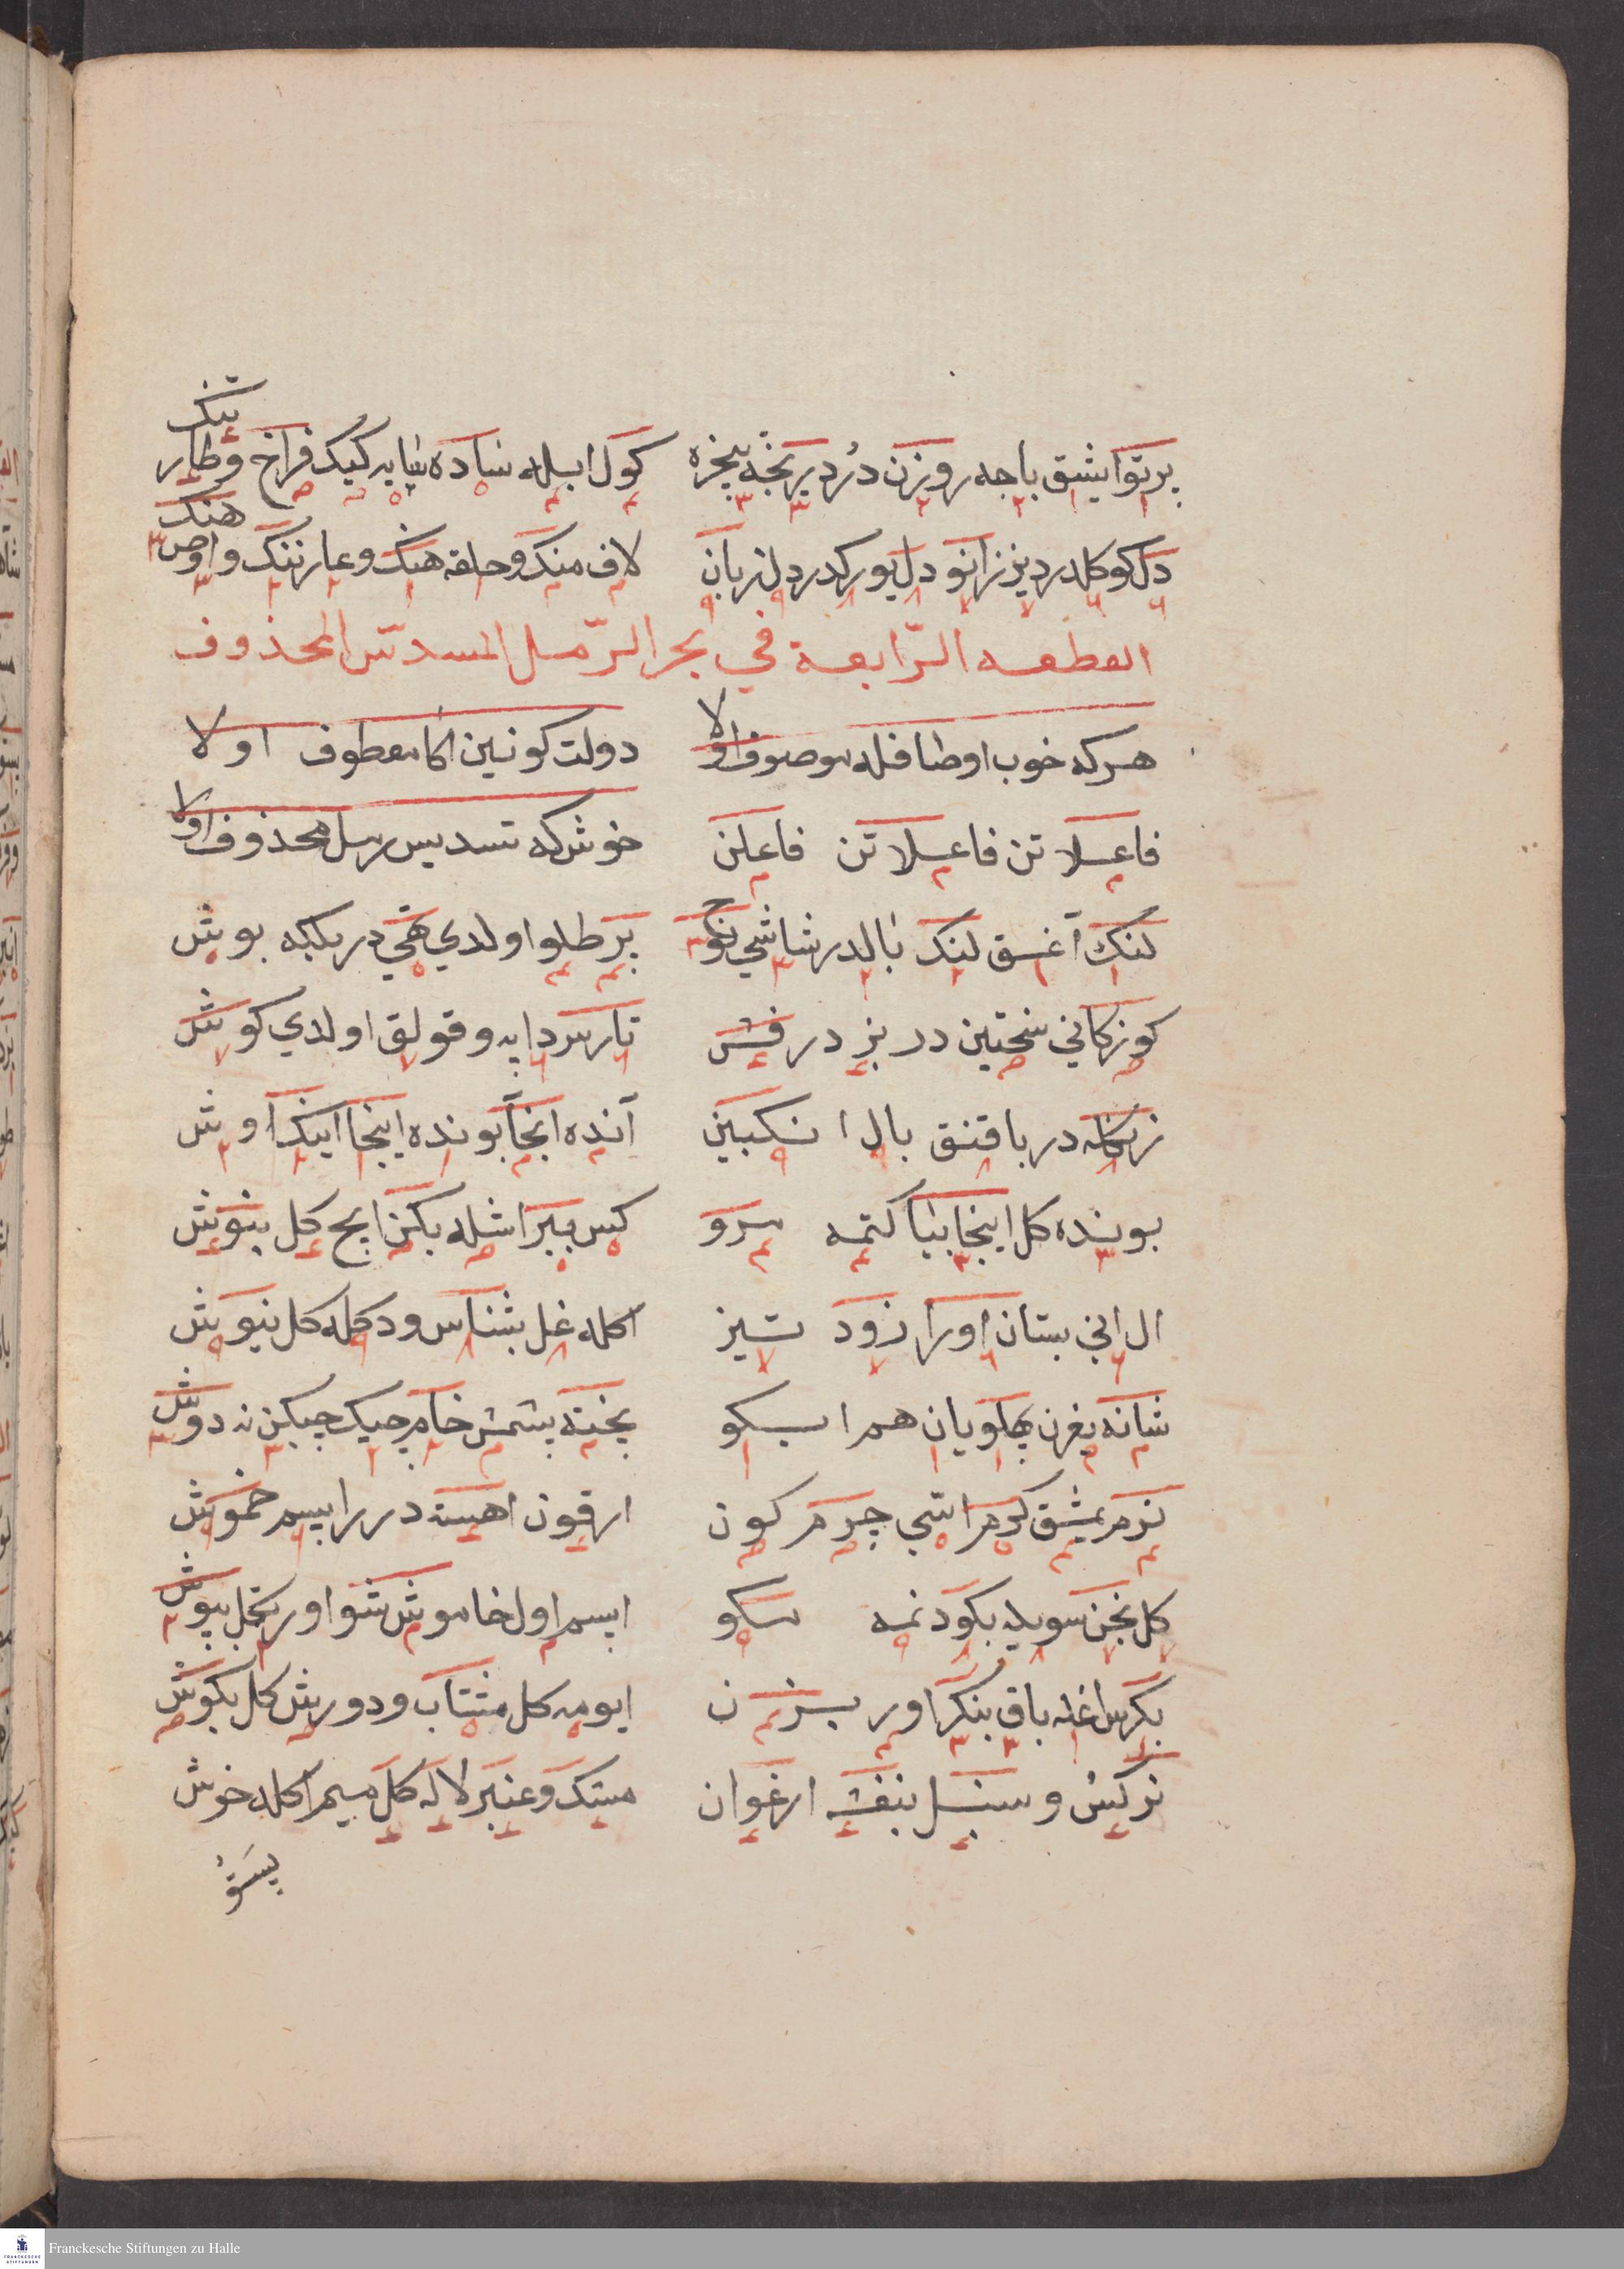 پرتو ایشق باجه روزن درد دیر یخنه پنجره کول ابله ساده سایه کیک فراخ و طار تنک
دل کوکلدر دیز زانو دل یورکدر دل زبان لاف منک و حلقه هنک و عار ننک و اوص هنک
القطعه الرّابعة في بحر الرّمل المسدّس المحذوف
هرکه خوب اوصافله موصوف اولا دولت کونین اکا معطوف اولا
فاعلاتن فاعلاتن فاعلن خوش که تسدیس رمل محذوف اولا
لنک آغسق لنک بالدر شاشي لوج بر طلو اولدي تهي در بلکله بوش
کوزکاني سختین در بز درفش تارسردابه و قولق اولدي کوش
در باقنق بال انکبین آنده انجا بونده اینجا اینک اوش
بونده کل اینجا بیا کتمه مرو کس ببر اشله بکن ایچ کل بنوش
ال اني بستان اورا زود تیز اکله غل بشناس و دکله کل نیوش
شانه یغرن پهلو یان هم ایسکو پخته پشمش خام چیک چیکن نه دوش
نرم یمشق کرم اسّي جرم کون ارقون اهسته در را ایسم خموش
کل نجن سویله بکو دنمه مکو ایسم اول خاموش شو اورتکل بپوش
بکرس اغله باق بنکر اور بزن ایومه کل مشتاب و دوریش کل بکوش
نرکس و سنبل بنفشه ارغوان مسک و عنبر لاله کل میم اکله خوش
Franckesche Stiftungen zu Halle